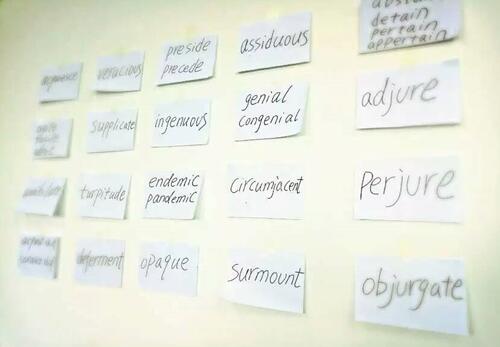 acquiesce
veracious
preside
precede
assiduous
abstain
detain
pertain
appertain
supplicate
ingenuous
genial
congenial
adjure
turpitude
endemic
pandemic
circumjacent
perjure
deferment
opaque
surmount
objurgate